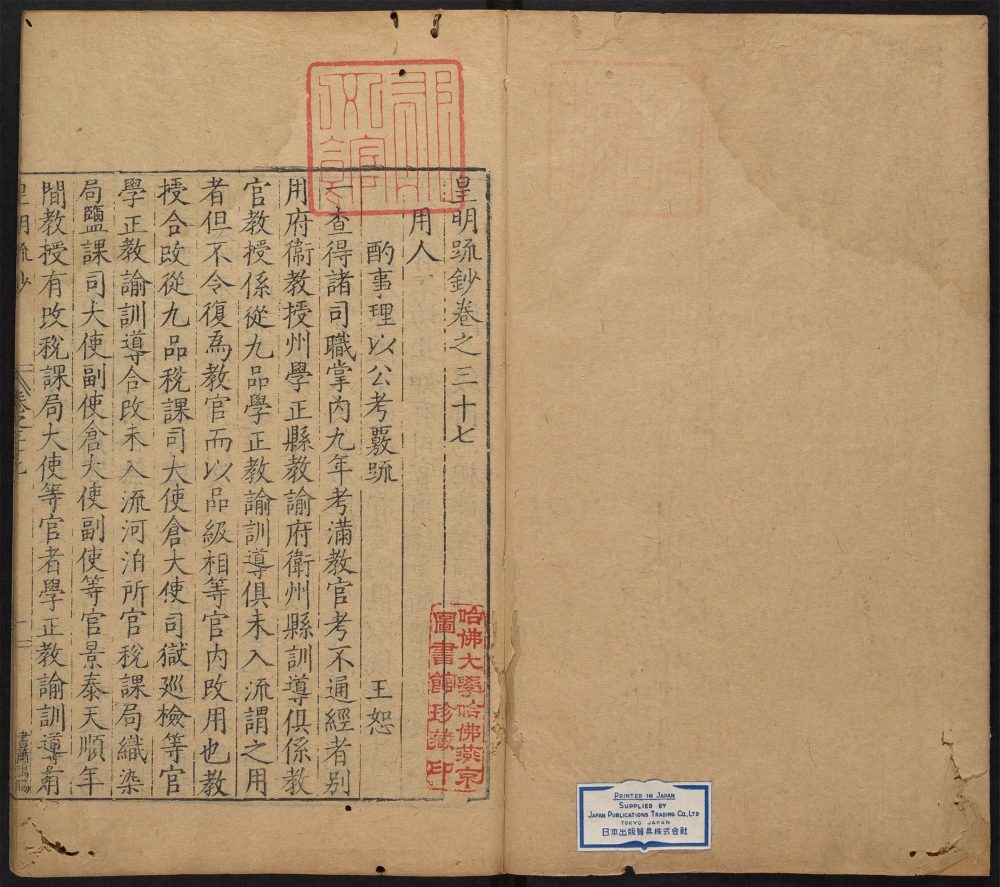 皇明疏鈔卷之三十七
用人
酌事理以公考覈疏 王恕
一查得諸司職掌內九年考滿教官考不通經者別
用府衞教授州學正縣教諭府衛州縣訓導俱係教
官教授係從九品學正教諭訓導俱未入流謂之用
者但不令復爲教官而以品級相等官內改用也教
授合改從九品稅課司大使倉大使司獄巡檢等官
學正教諭訓導合改未入流河泊所官稅課局織染
局鹽課司大使副使倉大使副使等官景泰天順年
間教授有改稅課局大使等官者學正教諭訓導有
皇明疏鈔 卷之三十七 一
哈佛大學哈佛燕京
圖書館珍藏印
PRINTED IN JAPAN
SUPPLIED BY
JAPAN PUBLICATIONS TRADING CO., LTD
TOKYO JAPAN
日本出版貿易株式会社